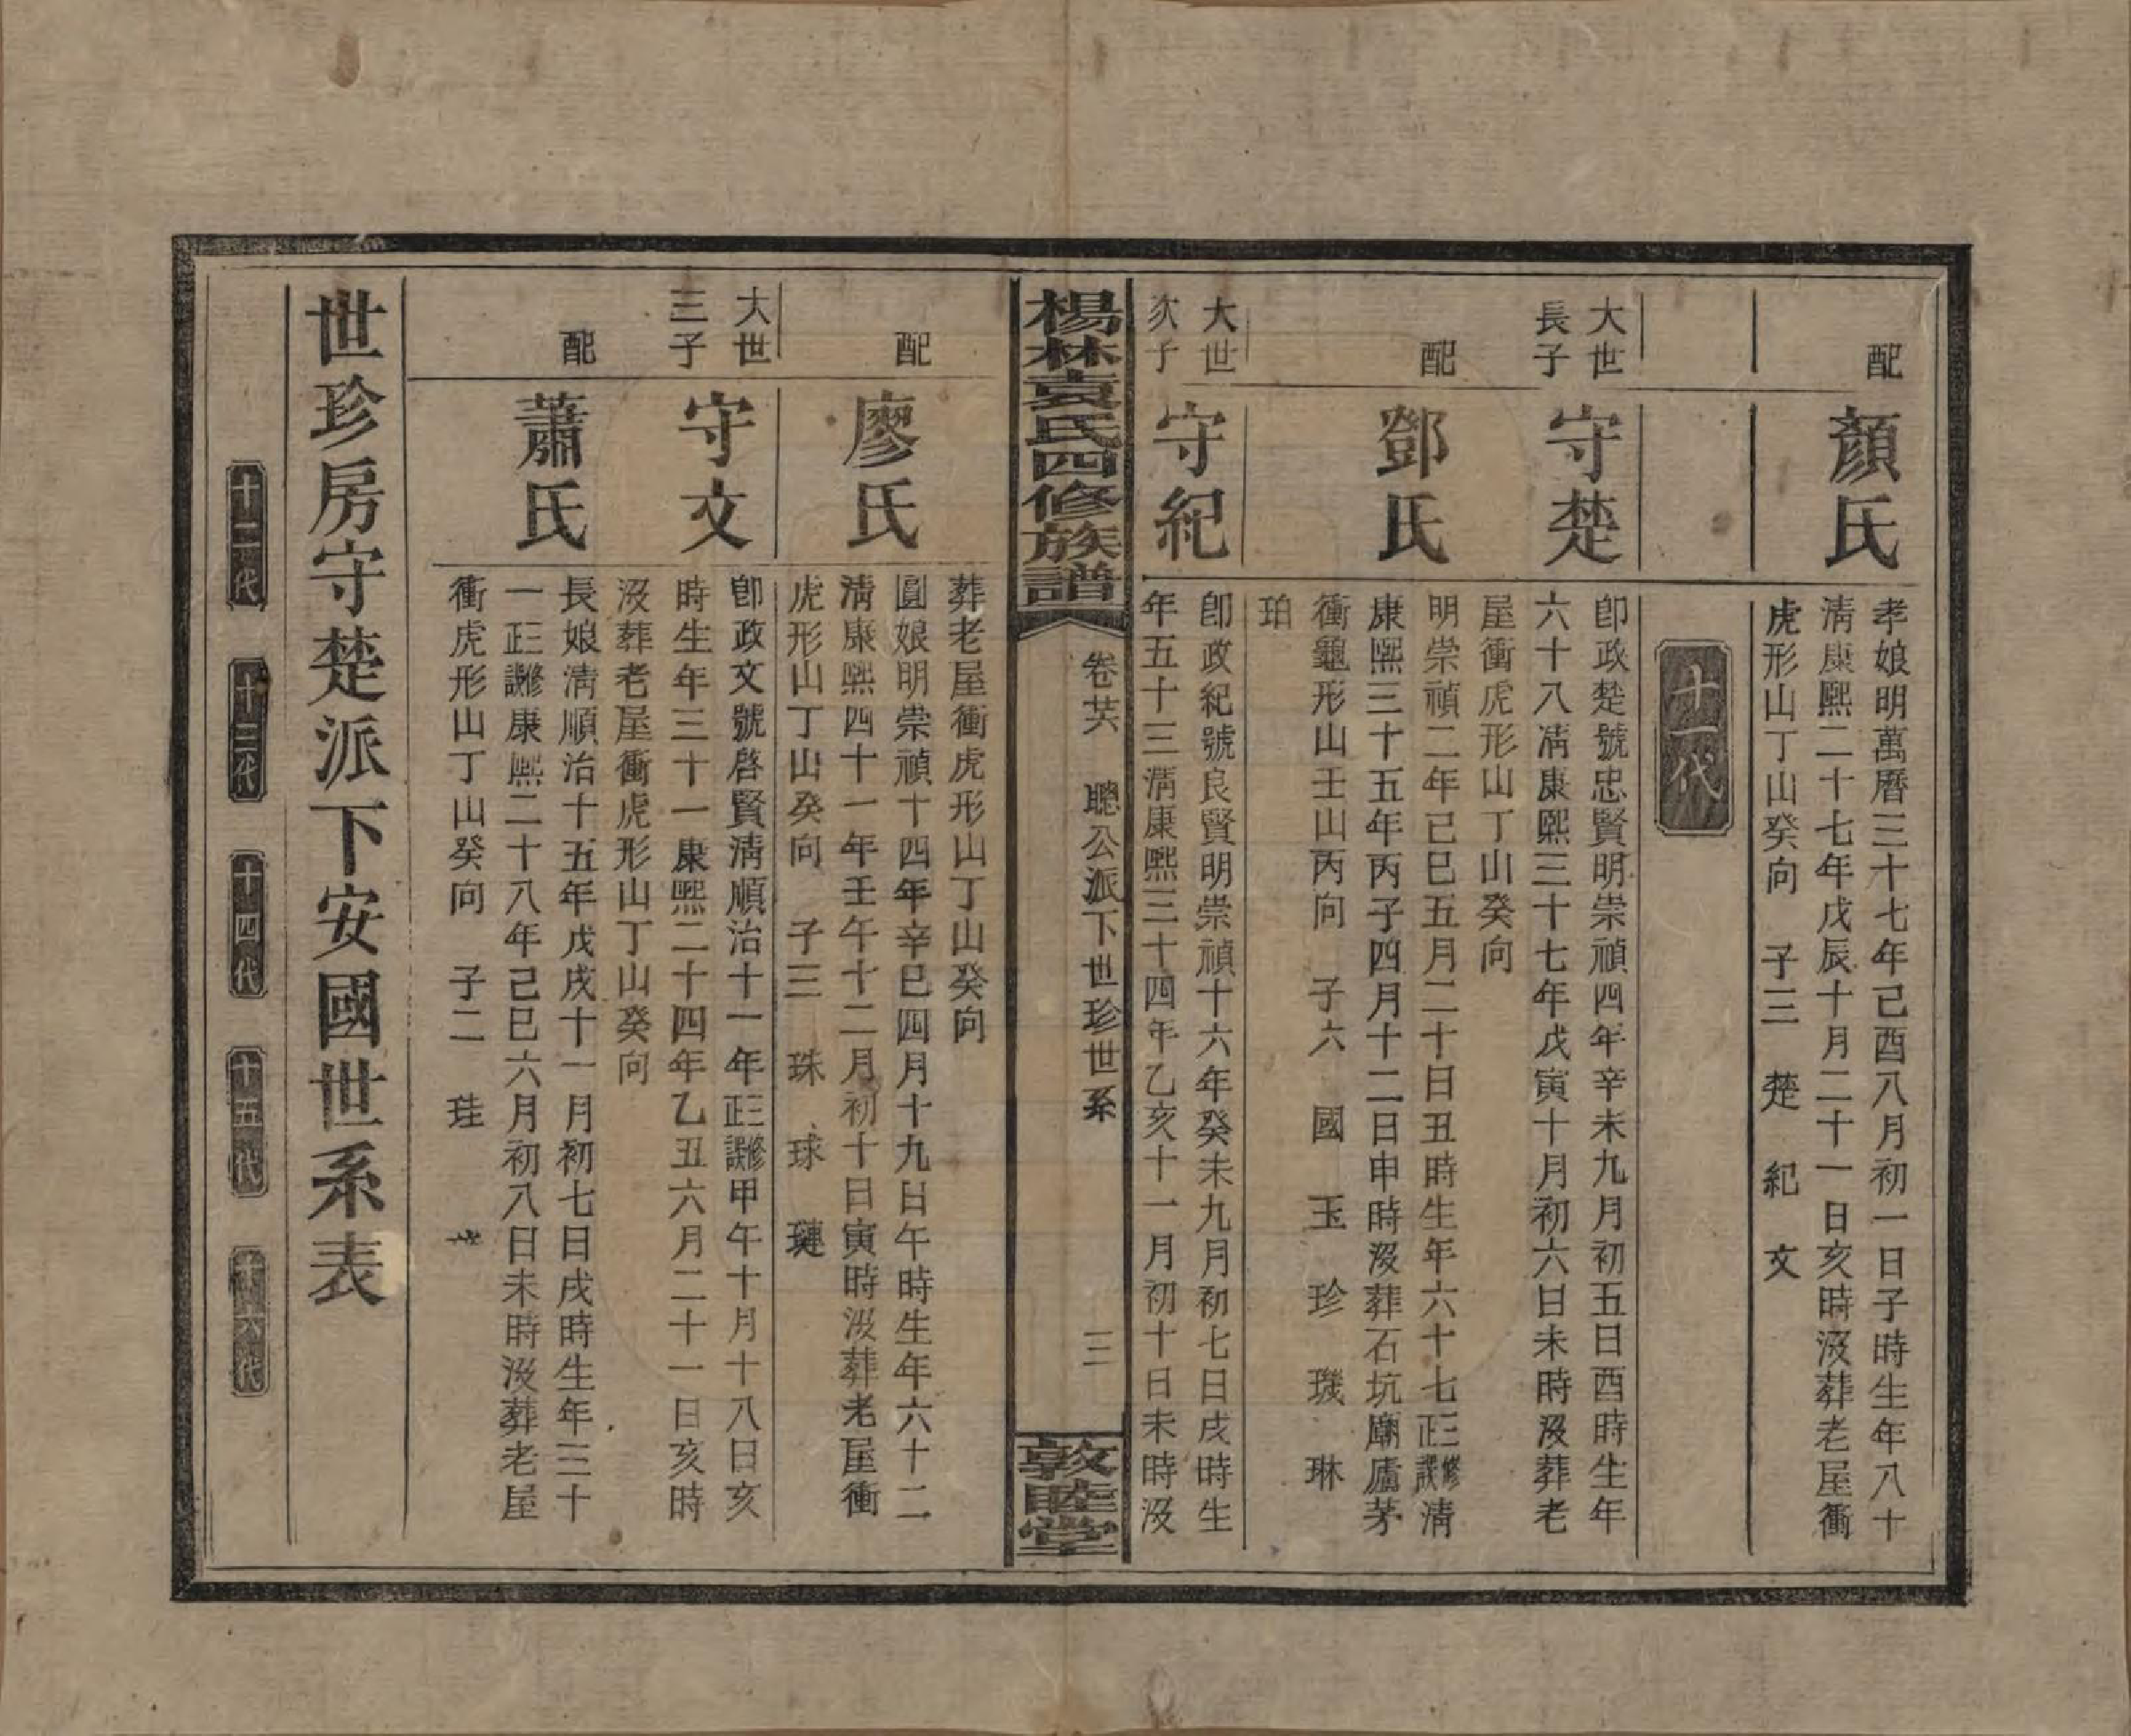 配
顏氏
孝娘明萬曆三十七年己酉八月初一日子時生年八十
淸康熙二十七年戊辰十月二十一日亥時沒葬老屋衝
虎形山丁山癸向 子三 楚 紀 文
十一代
大世
長子
守楚
卽政楚號忠賢明崇禎四年辛未九月初五日酉時生年
六十八淸康熙三十七年戊寅十月初六日未時沒葬老
屋衝虎形山丁山癸向
配
鄧氏
明崇禎二年己巳五月二十日丑時生年六十七正三修誤淸
康熙三十五年丙子四月十二日申時沒葬石坑廟廬茅
衝龜形山壬山丙向 子六 國 玉 珍 璣 琳
珀
大世
次子
守紀
卽政紀號良賢明崇禎十六年癸未九月初七日戌時生
年五十三淸康熙三十四年乙亥十一月初十日未時沒
楊林袁氏四修族譜
卷芺 聰公派下世珍世系
三
敦睦堂
葬老屋衝虎形山丁山癸向
配
廖氏
圓娘明崇禎十四年辛巳四月十九日午時生年六十二
淸康熙四十一年壬午十二月初十日寅時沒葬老屋衝
虎形山丁山癸向 子三 珠 球 璉
大世
三子
守文
卽政文號啓賢淸順治十一年正三修誤甲午十月十八日亥
時生年三十一康熙二十四年乙丑六月二十一日亥時
沒葬老屋衝虎形山丁山癸向
配
蕭氏
長娘淸順治十五年戊戌十一月初七日戌時生年三十
一正三修誤康熙二十八年己巳六月初八日未時沒葬老屋
衝虎形山丁山癸向 子二 珪
世珍房守楚派下安國世系表
十二代 十三代 十四代 十五代 十六代